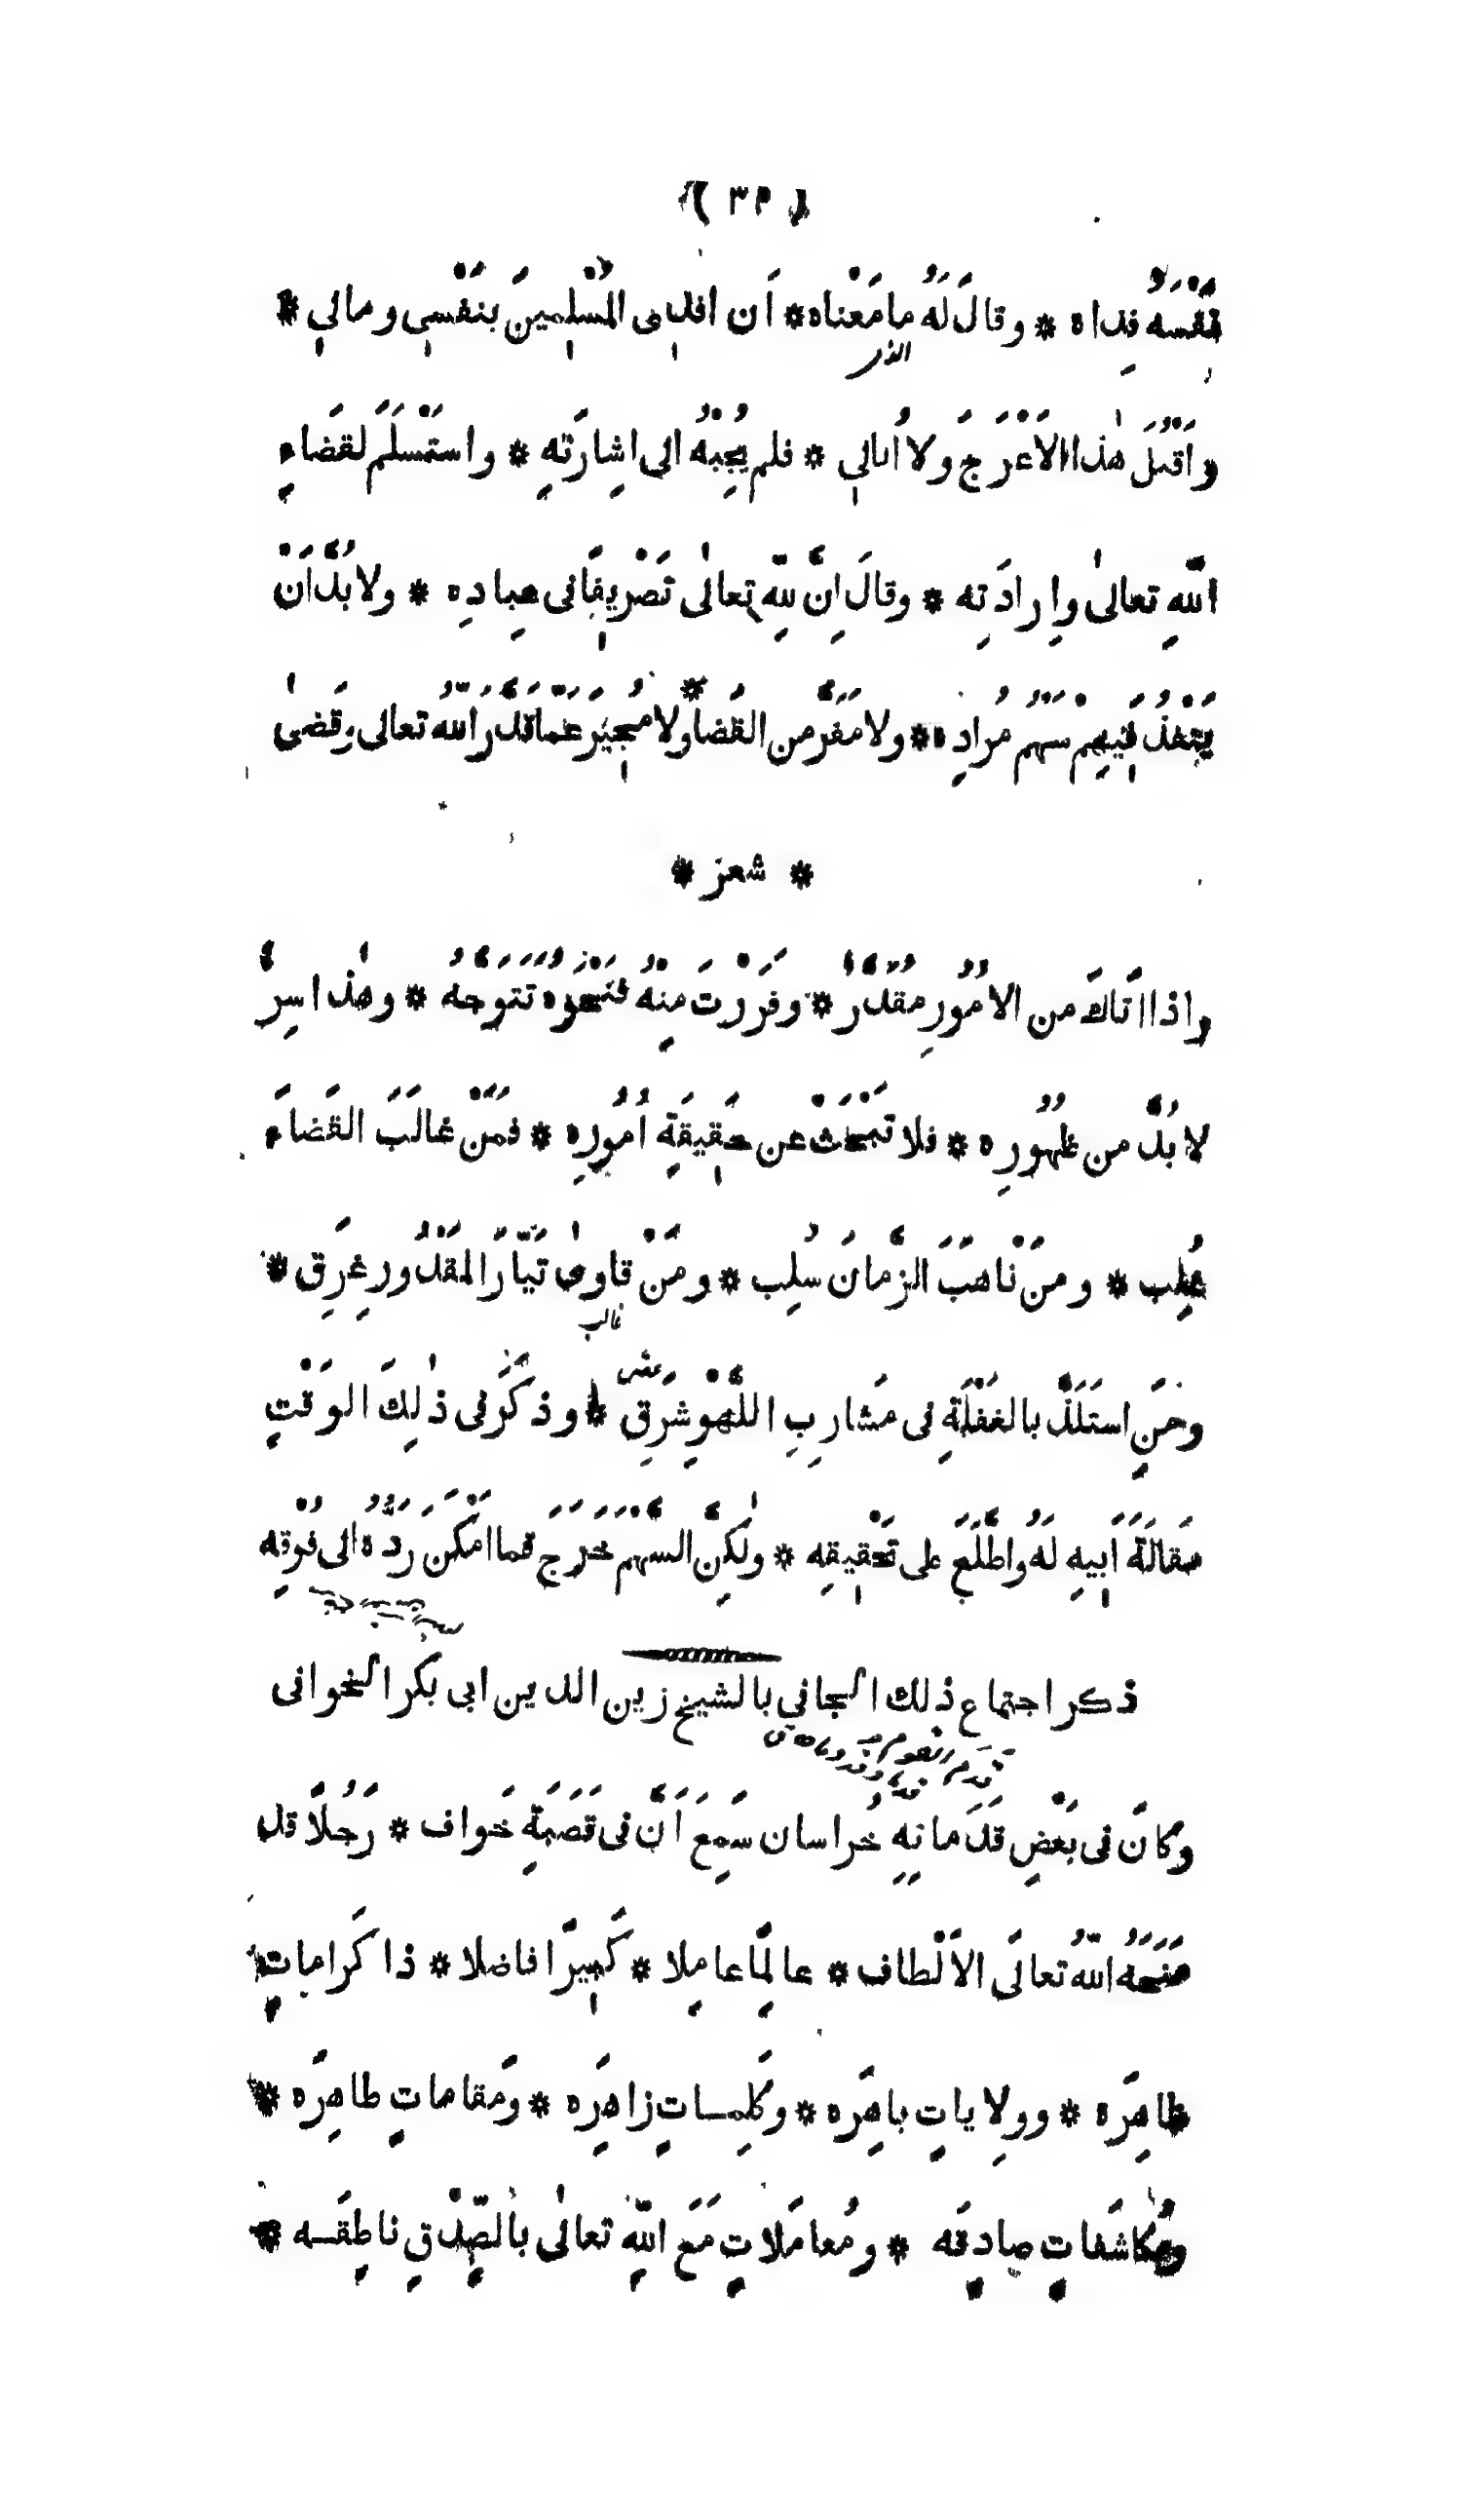 ( ٣٢ )
نَفْسَهُ فِداه * وقالَ لَهُ ما مَعْناه * اَن افدِى المُسْلِمِينَ بنَفْسِى ومالِى *
واَقْتُلَ هٰذا الاَعْرَجَ ولا اُبالِى * فلم يُجِبْهُ الى اِشِارَتِهِ * واستَسْلَمَ لقَضاءِ
اللّهِ تعالىٰ وإرادَتِه * وقالَ اِنَّ لِلّهِ تعالٰى تَصْرِيفًا فى عِبادِه * ولا بُدَّ اَنْ
يَنْفُذَ فِيهِمْ سَهْمُ مُرادِه * ولا مَفَرَّ من القَضاءِ * ولا مُجِيرَ عَمّا قَدَّرَ اللّهُ تعالى وقَضىٰ
* شعر *
واذا اتَاكَ من الامُورِ مُقَدَّرٌ * وفَرَرْتَ مِنهُ فنَحْوَهُ تتَوَجَّهُ * وهٰذا سِرٌّ
لا بُدَّ من ظُهُورِه * فلا تَبْحَثْ عن حَقِيقَةِ اُمُورِه * فمَنْ غالَبَ القَضاءَ
غُلِب * ومَنْ ناهَبَ الزَّمانَ سُلِب * ومَنْ قاوىٰ تَيَّارَ المَقْدُورِ غَرِق *
غالب
ومَنِ استَلَذَّ بالغَفْلَةِ فى مَشارِبِ اللَّهْوِ شَرِق * وذكَرَ فى ذٰلِكَ الوَقْتِ
مَقالَةَ اَبِيهِ لَهُ واطَّلَعَ على تَحْقِيقِه * ولٰكِنَّ السَّهْمَ خَرَجَ فما امْكَنَ رَدُّهُ الى فُوْقِه
ذكر اجتماع ذلك الجانى بالشيخ زين الدين ابى بكر الخوافى
وكانَ فى بَعْضِ قَدَماتِهِ خُراسان سَمِعَ اَنَّ فى قَصَبَةِ خَواف * رَجُلًا قد
مَنَحَهُ اللّهُ تَعالَى الاَلْطاف * عالِمًا عامِلا * كَبِيرًا فاضلا * ذا كَراماتٍ
ظاهِرَه * ووِلاياتٍ باهِرَه * وكَلِمساتٍ زاهِرَه * ومَقاماتٍ طاهِرَه *
ومُكاشَفاتٍ صادِقَه * ومُعامَلاتٍ مَعَ اللّهِ تعالٰى بالصِّدْقِ ناطِقَسه *